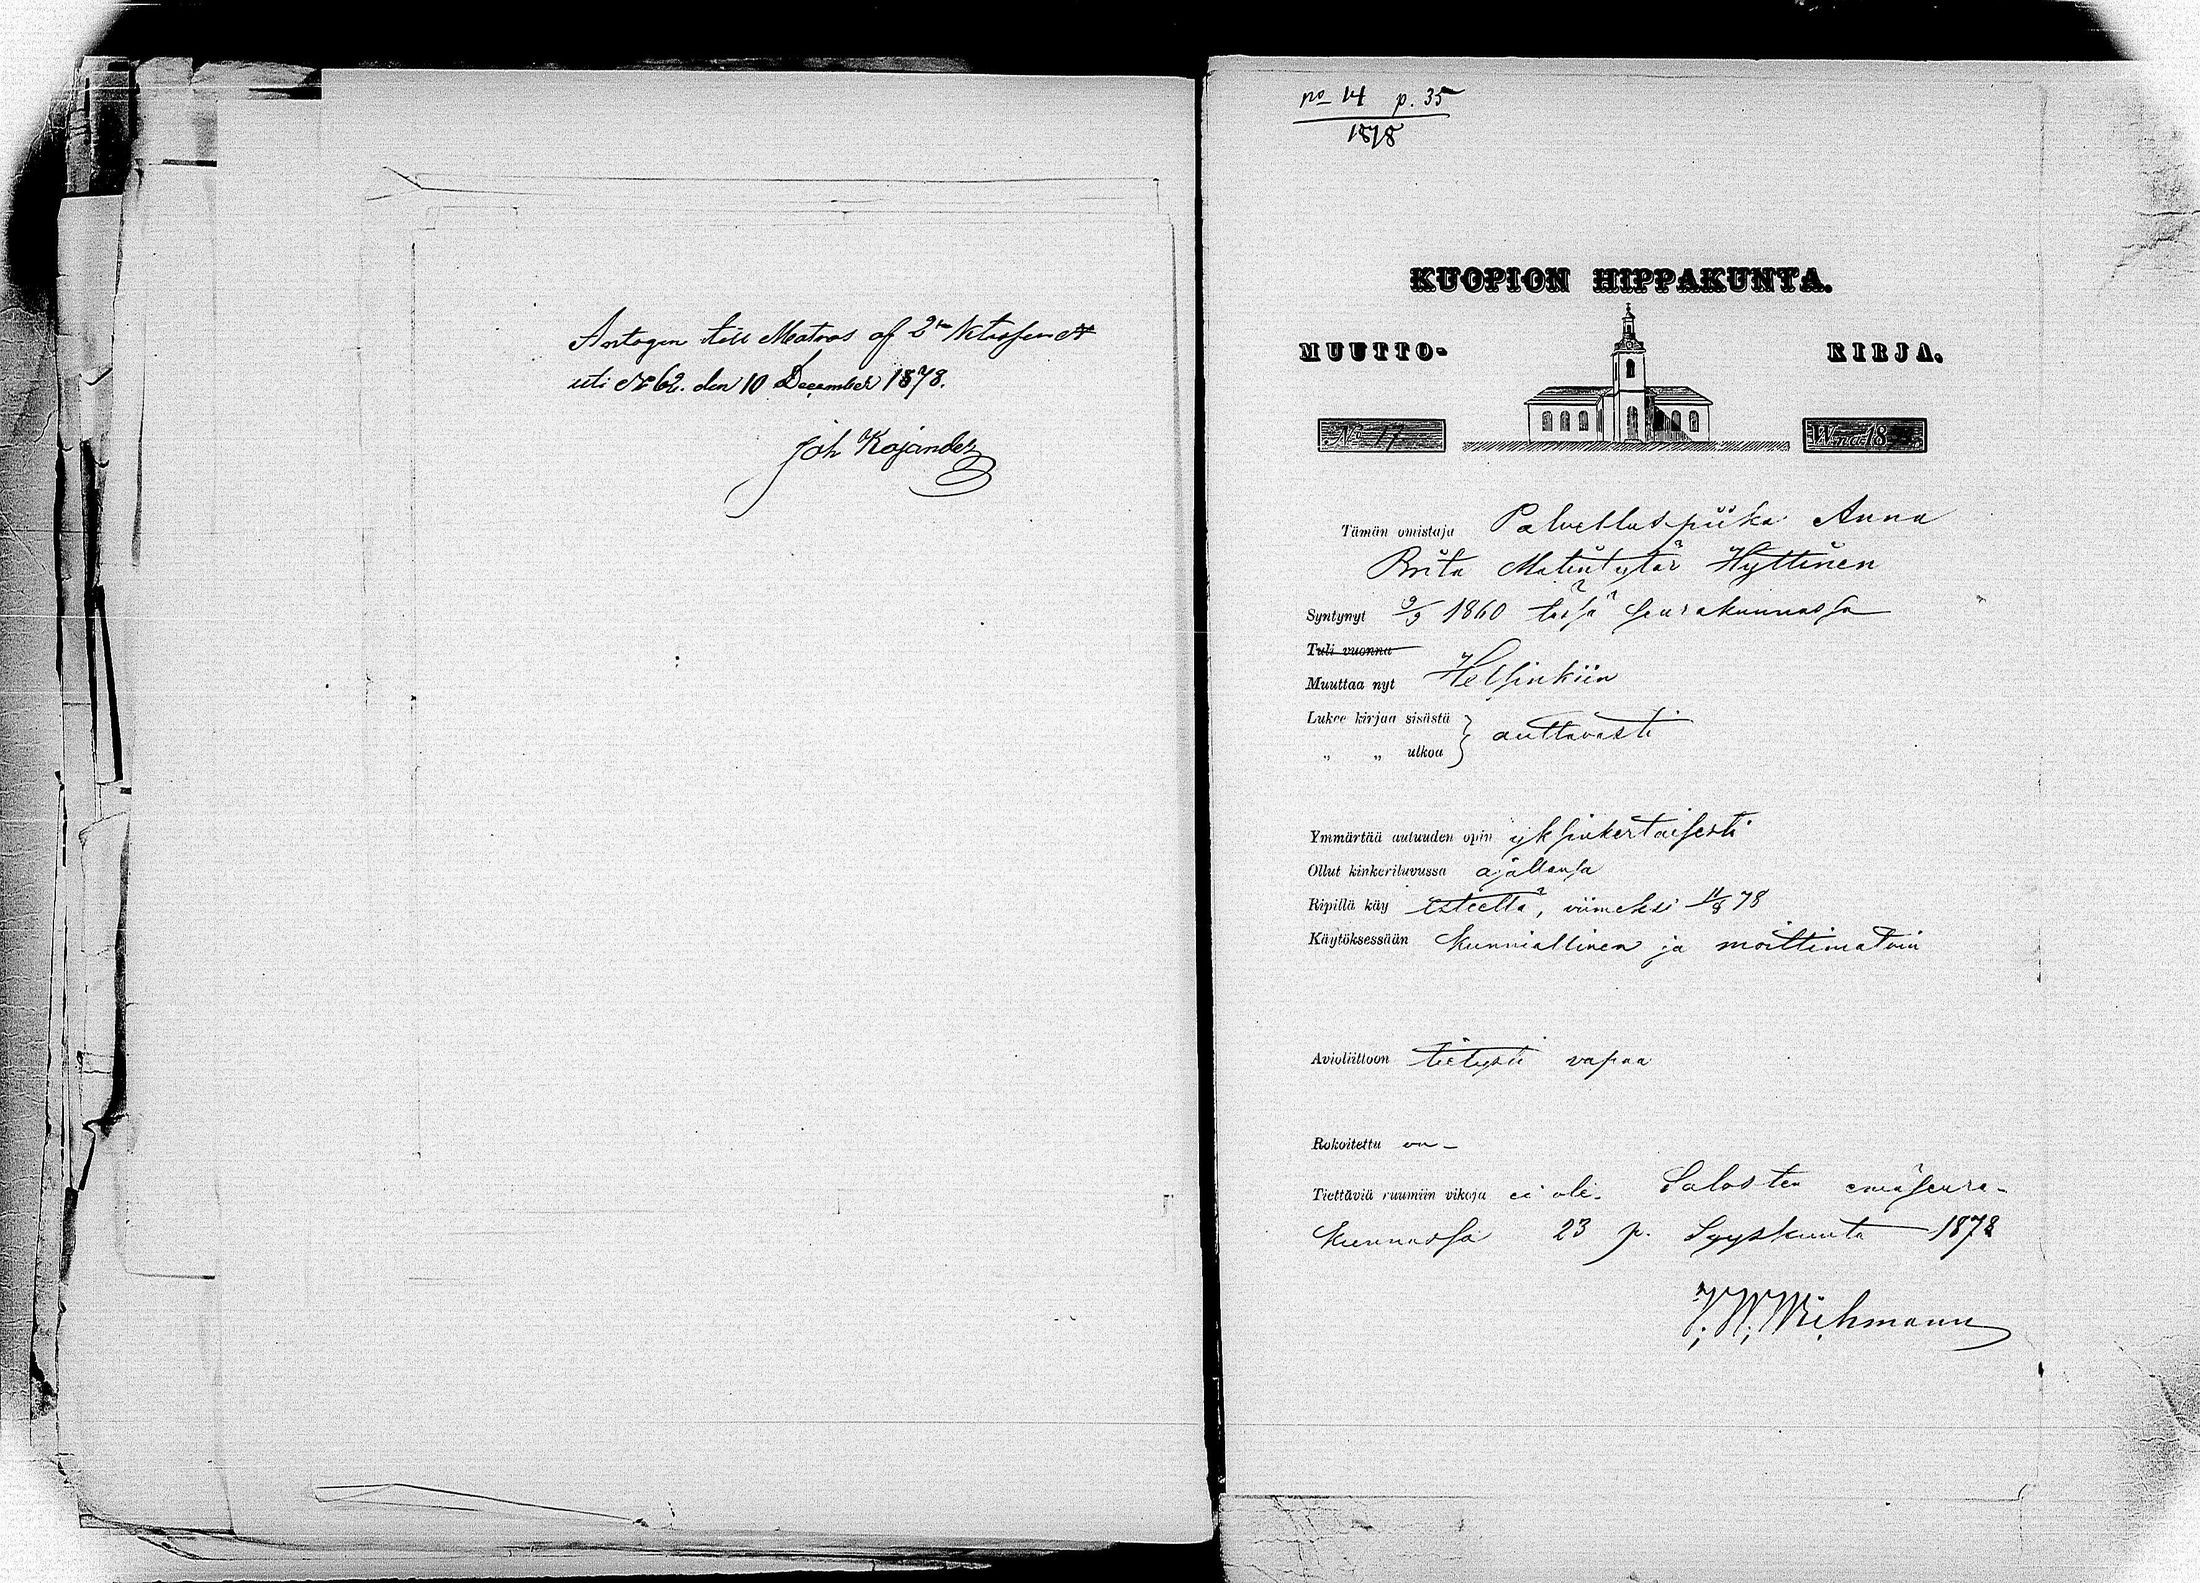 Antagen till Matros af 2en Klassen
uti No 62. den 10 December 1878.
Joh Kajander
no 14 p. 35
1878
KUOPION HIPPAKUNTA.
MUUTTO- KIRJA.
No 17 W:na 18
Tämän omistaja Palvelluspiika Anna
Brita Matintytär Hyttinen
Syntynyt 9/9 1860 tässä seurakunnassa
Tuli vuonna
Muuttaa nyt Helsinkiin
Lukee kirjaa sisästä
„ „ ulkoa } auttavasti
Ymmärtää autuuden opin yksinkertaisesti
Ollut kinkeriluvussa ajallansa
Ripillä käy esteettä, viimeksi 11/8 78
Käytöksessään kunniallinen ja moittimatoin
Avioliittoon tietysti vapaa
Rokoitettu on –
Tiettäviä ruumiin vikoja ei ole. Saloisten emäseura-
kunnassa 23 p. Syyskuuta 1878
Wichmann